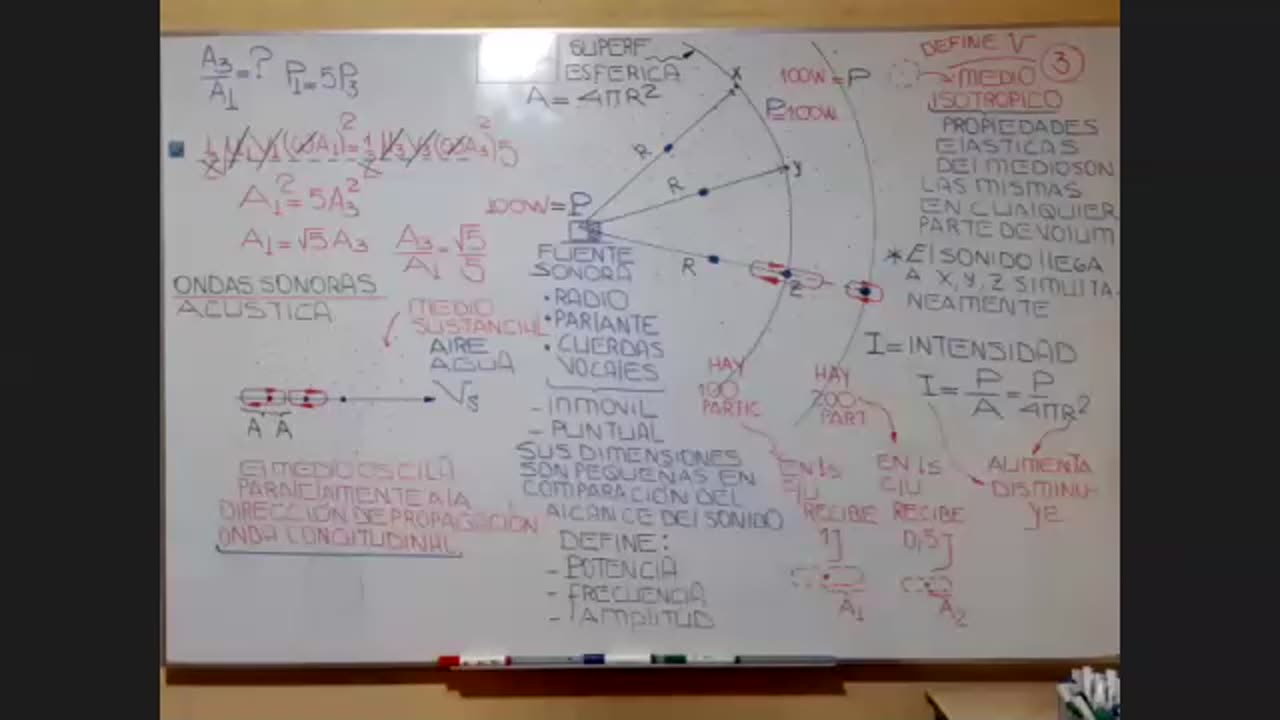 A₃/A₁ = ? P₁ = 5P₃
½ μ₁ V₁ (ωA₁)² = ½ μ₃ V₃ (ωA₃)² 5
A₁² = 5A₃²
A₁ = √5 A₃ A₃/A₁ = √5/5
ONDAS SONORAS
ACUSTICA
MEDIO
SUSTANCIAL
AIRE
AGUA
Vs
A A
El MEDIO OSCILA
PARAlElAMENTE A lA
DIRECCIÓN DE PROPAGACIÓN
ONDA LONGITUDINAL
SUPERF
ESFERICA
A = 4πR²
X
R
R
Y
R
Z
100W = P
FUENTE
SONORA
• RADIO
• PARlANTE
• CUERDAS
VOCAlES
- INMOVIL
- PUNTUAL
SUS DIMENSIONES
SON PEQUEÑAS EN
COMPARACIÓN DEL
AlCANCE DEl SONIDO
DEFINE:
- POTENCIA
- FRECUENCIA
- AMPlITUD
100W = P
P=100W
HAY
100
PARTIC
HAY
200
PART
EN 1s
C/U
RECIBE
1J
A₁
EN 1s
C/U
RECIBE
0,5J
A₂
DEFINE V
3
MEDIO
ISOTROPICO
PROPIEDADES
ElASTICAS
DEl MEDIO SON
LAS MISMAS
EN CUAlQUIER
PARTE DE VOlUM
* El SONIDO llEGA
A X, Y, Z SIMUlTA-
NEAMENTE
I = INTENSIDAD
I = P/A = P/4πR²
AUMENTA
DISMINU-
YE